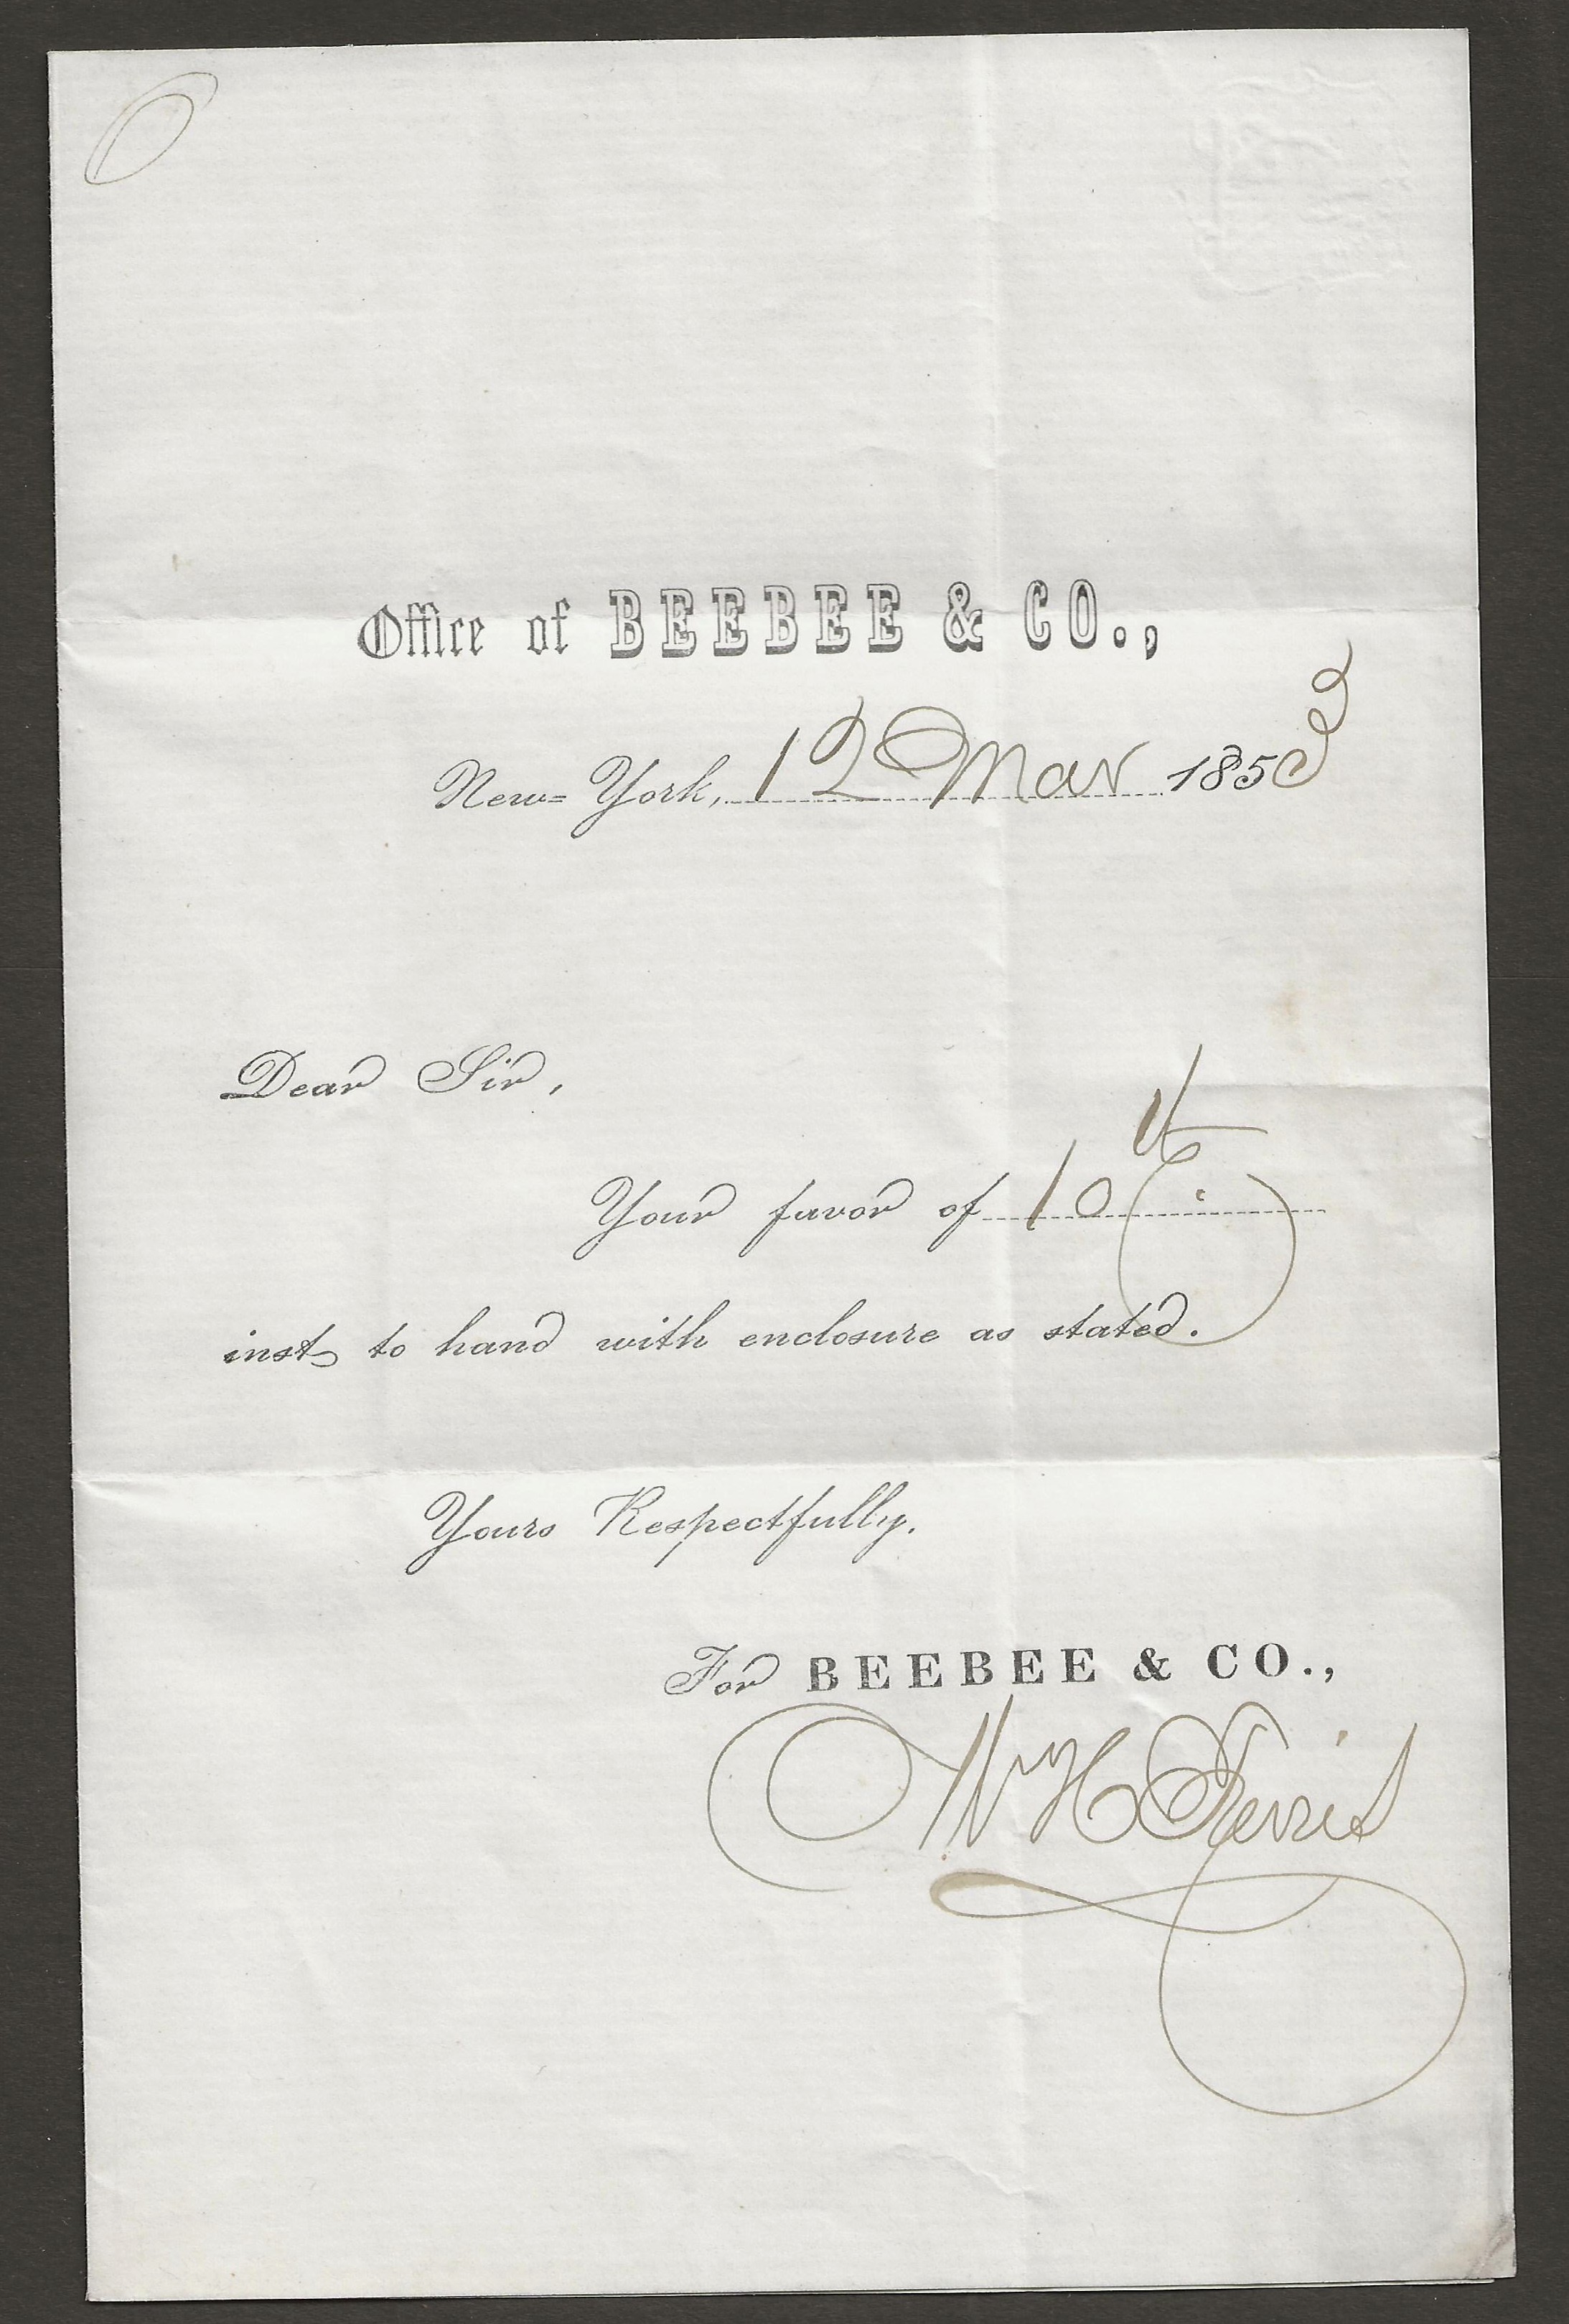 Office of BEEBEE & CO.,
New-York, 12 Mar 1853
Dear Sir,
Your favor of 10th
inst to hand with enclosure as stated.
Yours Respectfully.
For BEEBEE & CO.,
Wm H Ferris